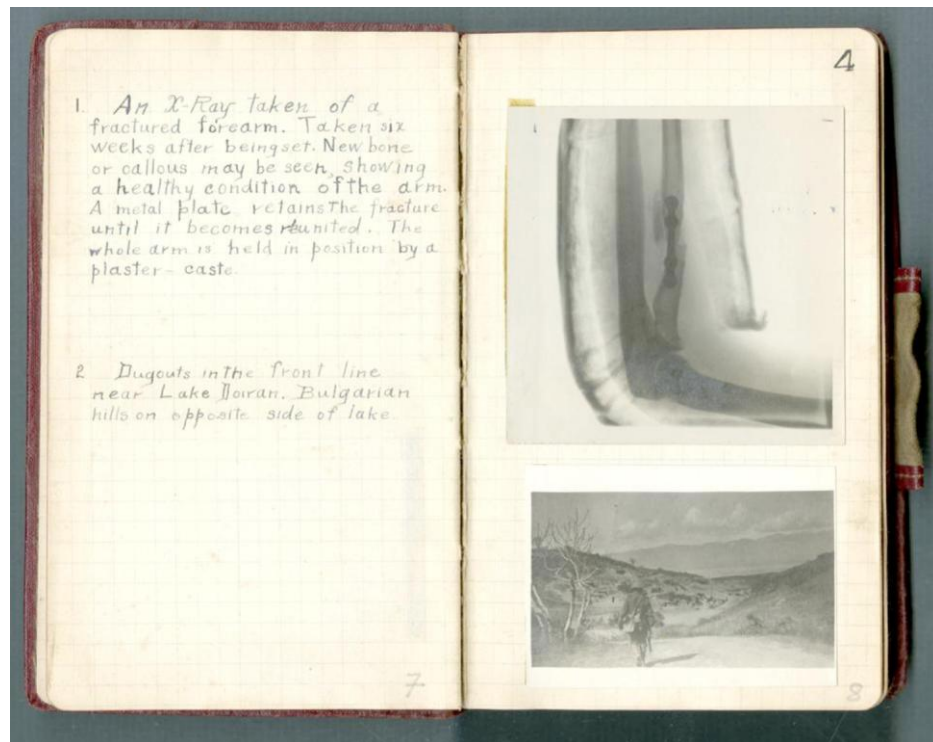 1. An X-Ray taken of a
fractured forearm. Taken six
weeks after being set. New bone
or callous may be seen, showing
a healthy condition of the arm.
A metal plate retains the fracture
until it becomes reunited. The
whole arm is held in position by a
plaster-caste.
2 Dugouts in the front line
near Lake Doiran. Bulgarian
hills on opposite side of lake.
7
4
8